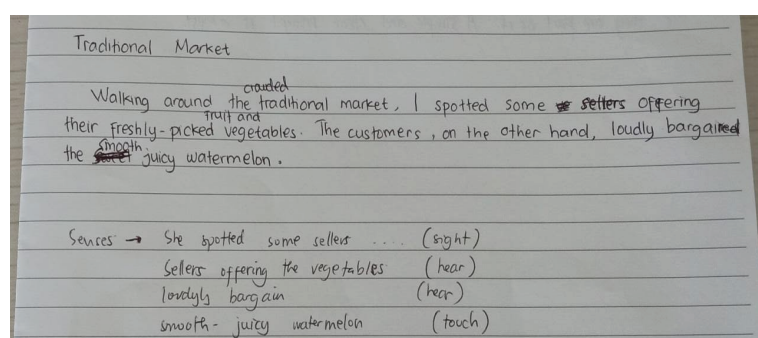 Traditional Market
Walking around the crowded traditional market, I spotted some sellers offering
their freshly-picked fruit and vegetables. The customers, on the other hand, loudly bargained
the smooth juicy watermelon.
Senses → She spotted some sellers .... (sight)
Sellers offering the vegetables (hear)
loudyly bargain (hear)
smooth- juicy watermelon (touch)